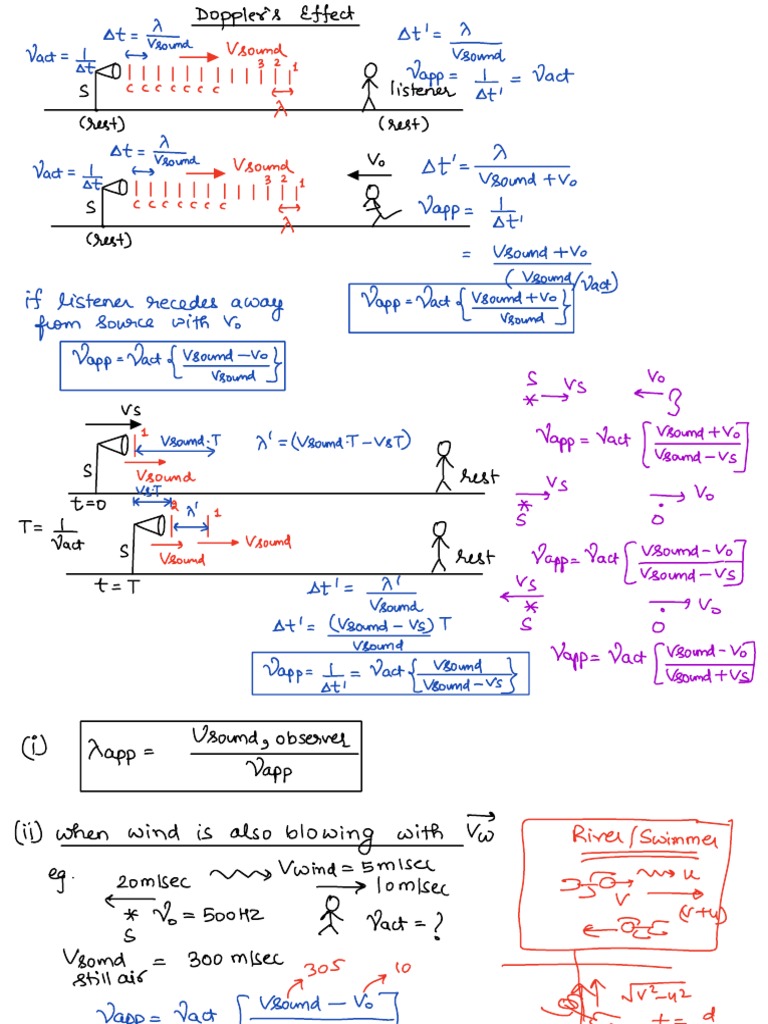 Doppler's Effect
Δt = λ/Vsound
νact = 1/Δt
Vsound
3 2 1
c c c c c c c
S
λ
listener
(rest) (rest)
Δt' = λ/Vsound
νapp = 1/Δt' = νact
Δt = λ/Vsound
νact = 1/Δt
Vsound
3 2 1
c c c c c c c
S
λ
V₀
(rest)
Δt' = λ/(Vsound + V₀)
νapp = 1/Δt'
= (Vsound + V₀)/(Vsound/νact)
νapp = νact {(Vsound + V₀)/Vsound}
if listener recedes away
from source with V₀
νapp = νact {(Vsound − V₀)/Vsound}
VS
1
Vsound·T
λ' = (Vsound·T − VsT)
S
Vsound
rest
t=0
Vs·T
2 λ' 1
T = 1/νact
S
Vsound
Vsound
rest
t = T
Δt' = λ'/Vsound
Δt' = (Vsound − Vs)T/Vsound
νapp = 1/Δt' = νact {Vsound/(Vsound − Vs)}
S VS V₀
νapp = νact [(Vsound + V₀)/(Vsound − Vs)]
VS V₀
S O
νapp = νact [(Vsound − V₀)/(Vsound − Vs)]
VS V₀
S O
νapp = νact [(Vsound − V₀)/(Vsound + Vs)]
(i) λapp = Vsound, observer/νapp
(ii) when wind is also blowing with Vw
eg.
Vwind = 5 m/sec
20 m/sec 10 m/sec
* ν₀ = 500 HZ νact = ?
S
Vsound still air = 300 m/sec
305 10
νapp = νact [Vsound − V₀
River/Swimmer
u
V
(v+u)
√v²−u²
t = d